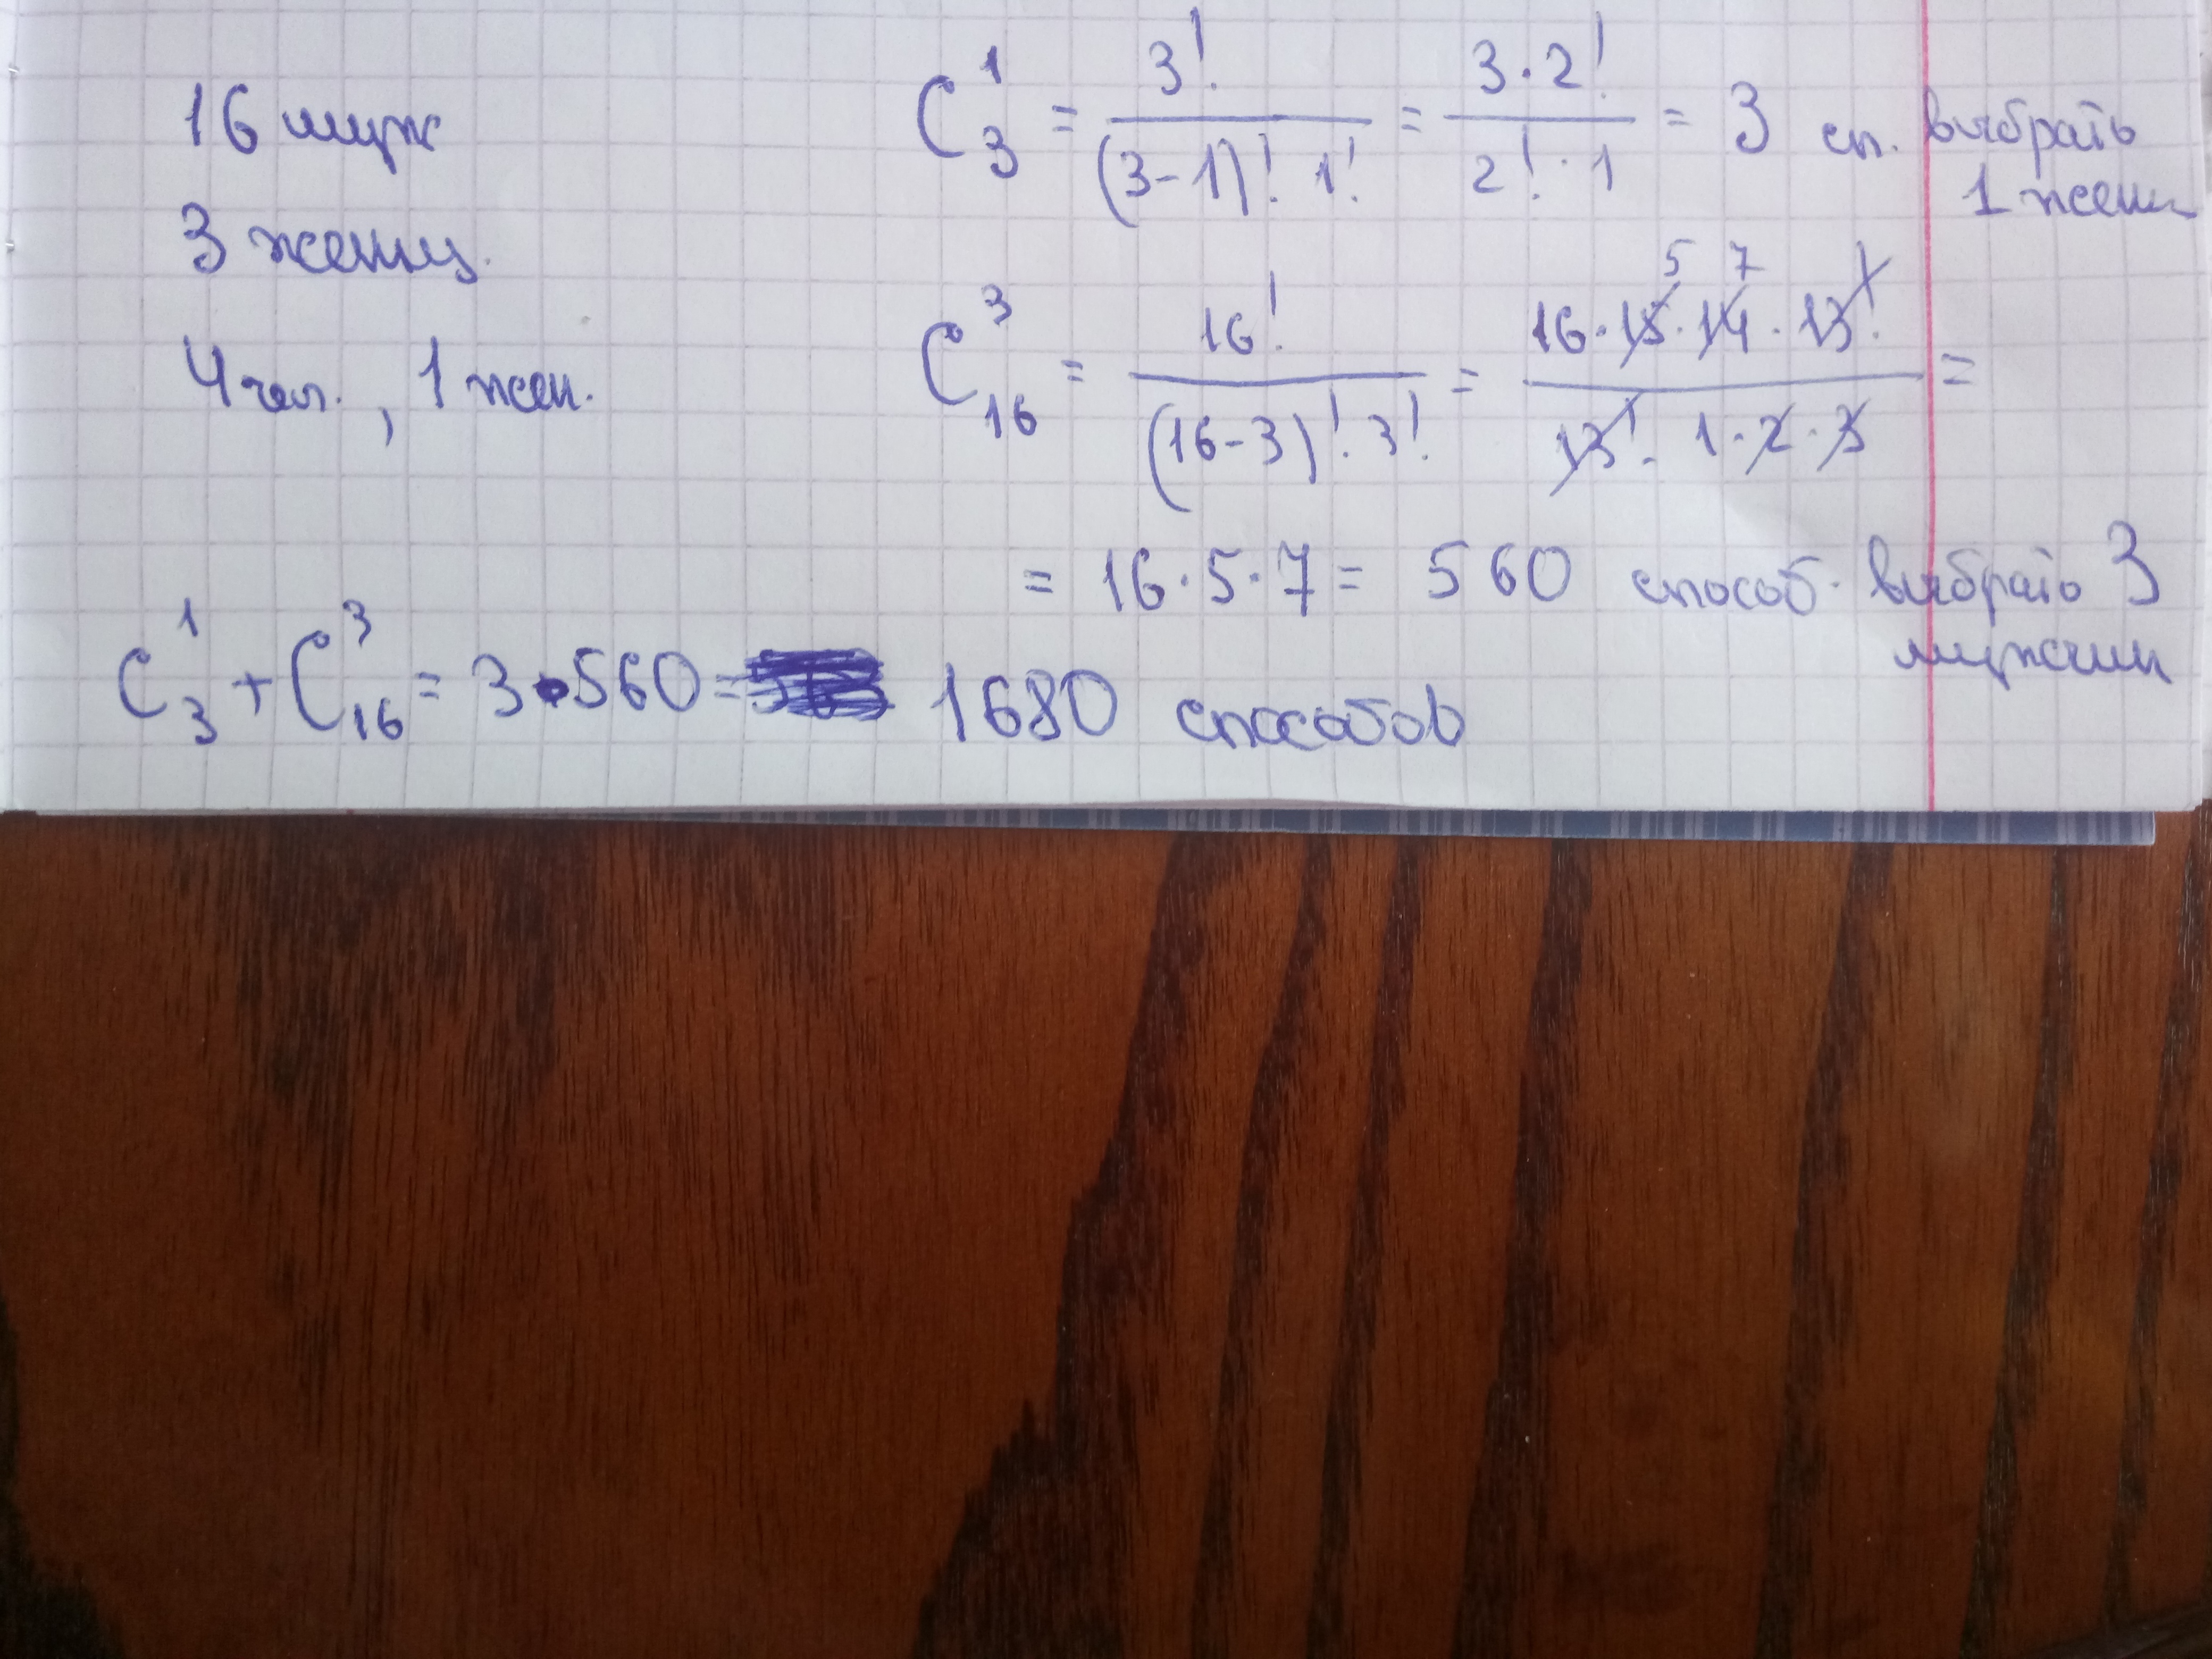 16 муж
3 женщ.
4 чел., 1 жен.
C₃¹ = 3! / (3-1)! 1! = 3·2! / 2!·1 = 3 сп. выбрать
1 женщ
C₁₆³ = 16! / (16-3)! 3! = 16·15·14·13! / 13! 1·2·3 =
5 7
= 16·5·7 = 560 способ. выбрать 3
мужчин
C₃¹ + C₁₆³ = 3·560 = 1680 способов